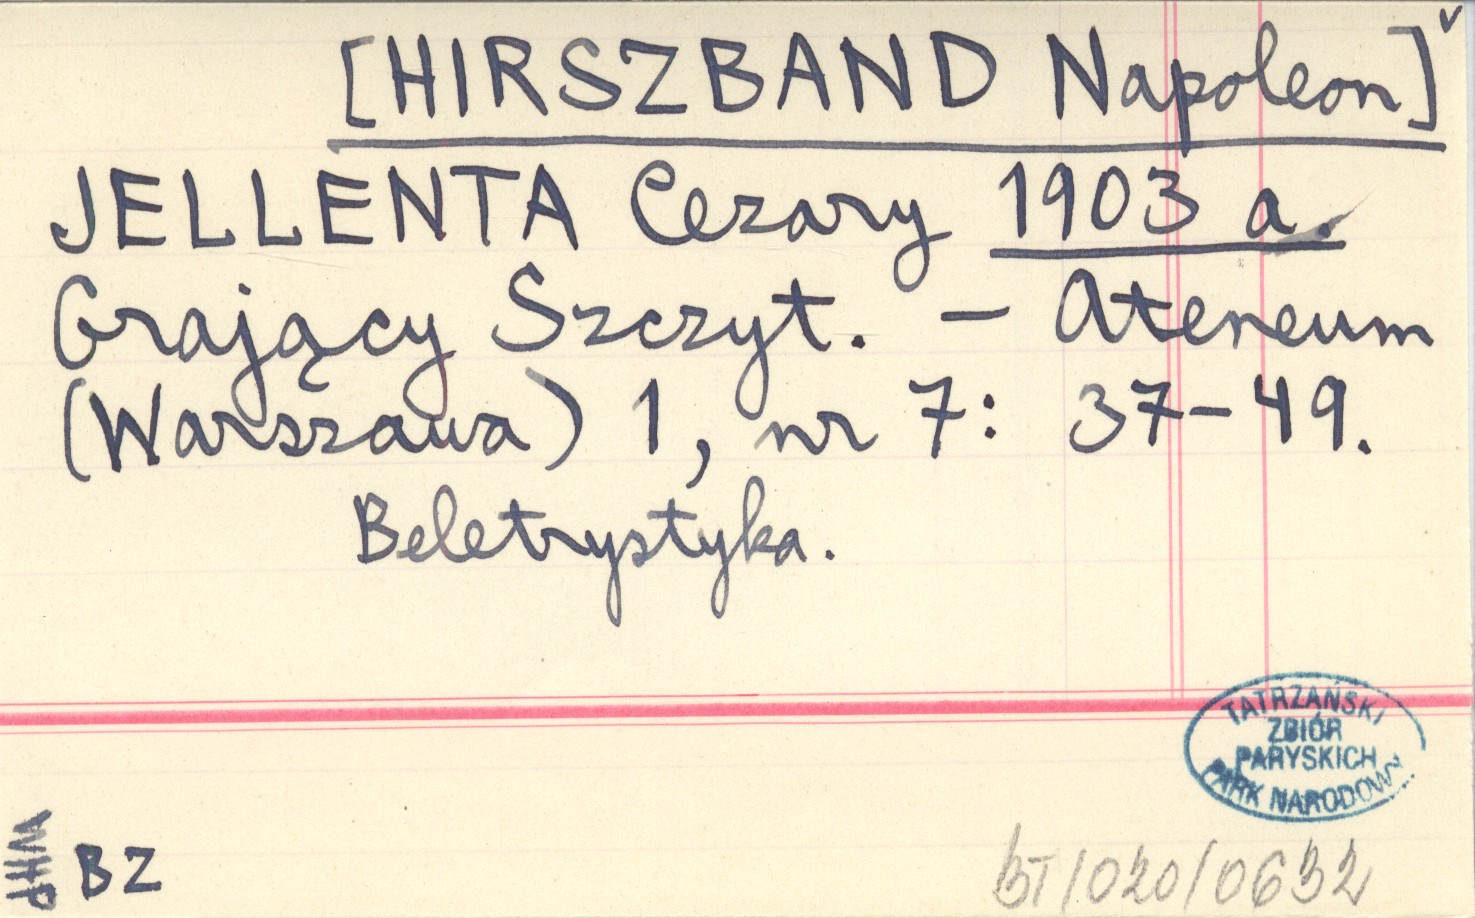 [HIRSZBAND Napoleon] v
JELLENTA Cezary 1903 a.
Grający Szczyt. – Ateneum
(Warszawa) 1, nr 7: 37–49.
Beletrystyka.
TATRZAŃSKI
ZBIÓR
PARYSKICH
PARK NARODOWY
WHP
BZ
BT/020/0632